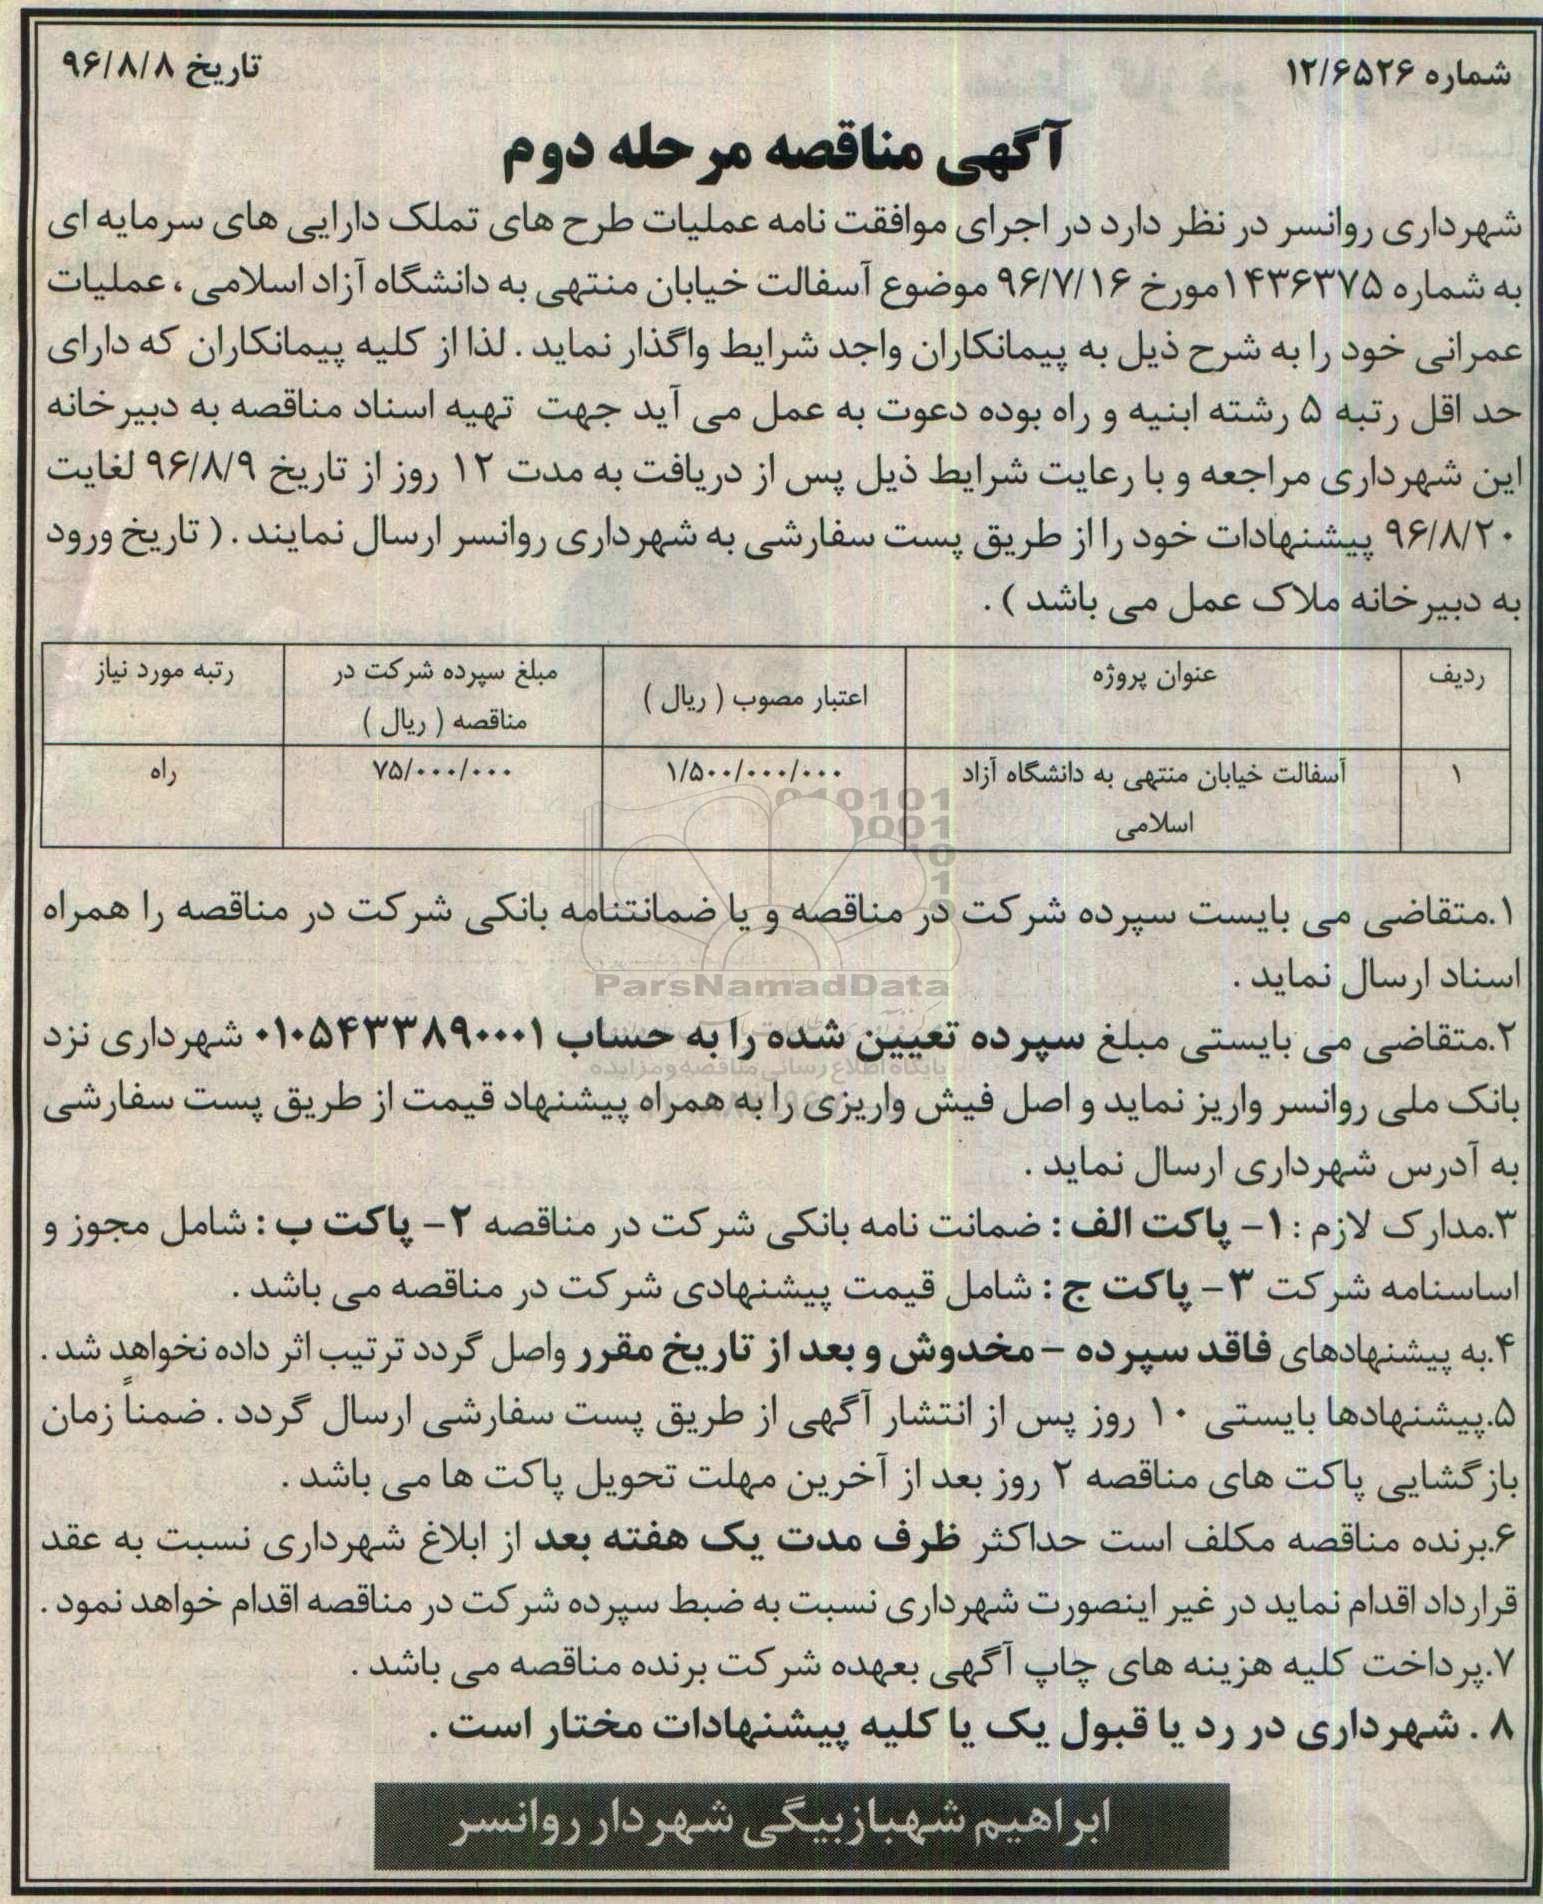 شماره ۱۲/۶۵۲۶
تاریخ ۹۶/۸/۸
آگهی مناقصه مرحله دوم
شهرداری روانسر در نظر دارد در اجرای موافقت نامه عملیات طرح های تملک دارایی های سرمایه ای
به شماره ۱۴۳۶۳۷۵مورخ ۹۶/۷/۱۶ موضوع آسفالت خیابان منتهی به دانشگاه آزاد اسلامی ، عملیات
عمرانی خود را به شرح ذیل به پیمانکاران واجد شرایط واگذار نماید . لذا از کلیه پیمانکاران که دارای
حد اقل رتبه ۵ رشته ابنیه و راه بوده دعوت به عمل می آید جهت تهیه اسناد مناقصه به دبیرخانه
این شهرداری مراجعه و با رعایت شرایط ذیل پس از دریافت به مدت ۱۲ روز از تاریخ ۹۶/۸/۹ لغایت
۹۶/۸/۲۰ پیشنهادات خود را از طریق پست سفارشی به شهرداری روانسر ارسال نمایند . ( تاریخ ورود
به دبیرخانه ملاک عمل می باشد ) .
ردیف
عنوان پروژه
اعتبار مصوب ( ریال )
مبلغ سپرده شرکت در
مناقصه ( ریال )
رتبه مورد نیاز
۱
آسفالت خیابان منتهی به دانشگاه آزاد
اسلامی
۱/۵۰۰/۰۰۰/۰۰۰
۷۵/۰۰۰/۰۰۰
راه
۱.متقاضی می بایست سپرده شرکت در مناقصه و یا ضمانتنامه بانکی شرکت در مناقصه را همراه
اسناد ارسال نماید .
۲.متقاضی می بایستی مبلغ سپرده تعیین شده را به حساب ۰۱۰۵۴۳۳۸۹۰۰۰۱ شهرداری نزد
بانک ملی روانسر واریز نماید و اصل فیش واریزی را به همراه پیشنهاد قیمت از طریق پست سفارشی
به آدرس شهرداری ارسال نماید .
۳.مدارک لازم : ۱- پاکت الف : ضمانت نامه بانکی شرکت در مناقصه ۲- پاکت ب : شامل مجوز و
اساسنامه شرکت ۳- پاکت ج : شامل قیمت پیشنهادی شرکت در مناقصه می باشد .
۴.به پیشنهادهای فاقد سپرده - مخدوش و بعد از تاریخ مقرر واصل گردد ترتیب اثر داده نخواهد شد .
۵.پیشنهادها بایستی ۱۰ روز پس از انتشار آگهی از طریق پست سفارشی ارسال گردد . ضمناً زمان
بازگشایی پاکت های مناقصه ۲ روز بعد از آخرین مهلت تحویل پاکت ها می باشد .
۶.برنده مناقصه مکلف است حداکثر ظرف مدت یک هفته بعد از ابلاغ شهرداری نسبت به عقد
قرارداد اقدام نماید در غیر اینصورت شهرداری نسبت به ضبط سپرده شرکت در مناقصه اقدام خواهد نمود .
۷.پرداخت کلیه هزینه های چاپ آگهی بعهده شرکت برنده مناقصه می باشد .
۸ . شهرداری در رد یا قبول یک یا کلیه پیشنهادات مختار است .
ابراهیم شهبازبیگی شهردار روانسر
ParsNamadData
پایگاه اطلاع رسانی مناقصه و مزایده